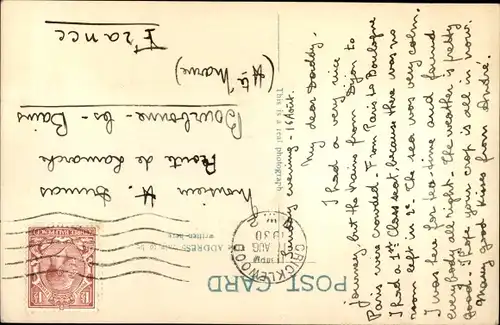 POST CARD
This is a real photograph
THE ADDRESS ONLY TO BE
WRITTEN HERE
CRICKLEWOOD
AUG
1930
N.W.2
Sunday evening - 16 Août.
My dear Daddy.
I had a very nice
journey but the trains from Dijon to
Paris were crowded. From Paris to Boulogne
I had a 1st Class seat, because there was no
room left in 2e. The sea was very calm.
I was here for tea-time and found
everybody all right. The weather is pretty
good. I hope your crop is all in now.
Many good kisses from André.
Monsieur H. Dumas
Route de Lamarche
Bourbonne-les-Bains
(Hte Marne)
France